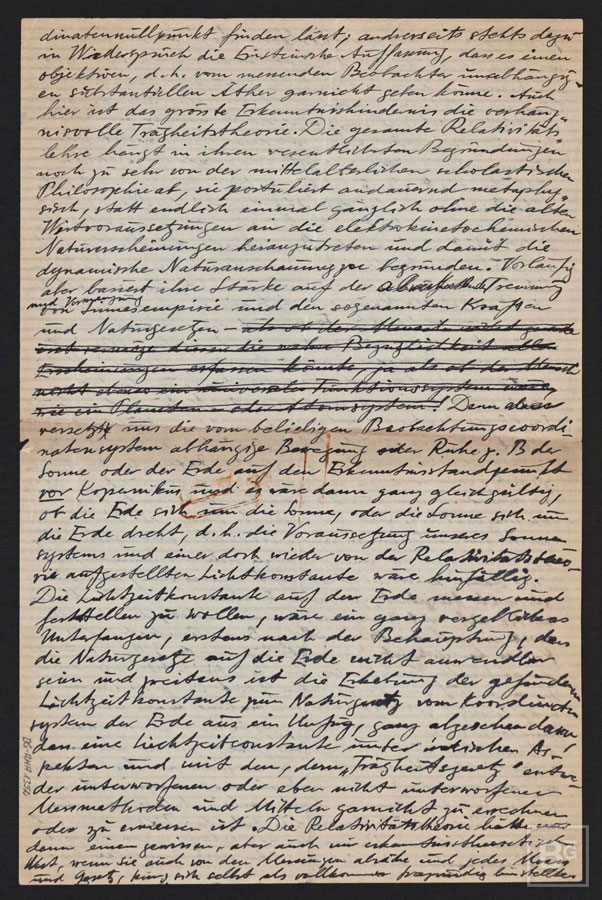 dinatennullpunkt finden lässt, andrerseits stehts dazu
in Wiederspruch die Einsteinsche Auffassung, dass es einen
objektiven, d.h. vom messenden Beobachter unabhängig-
en substantiellen Äther garnicht geben könne. Auch
hier ist das grösste Erkenntnishindernis die verhäng-
nisvolle Trägheitstheorie. Die gesamte Relativitäts-
lehre hängt in ihren wesentlichsten Begründungen
noch zu sehr von der mittelalterlichen scholastischen
Philosophie ab, sie postuliert andauernd metaphy-
sisch, statt endlich einmal gänzlich ohne die alten
Wertvoraussetzungen an die elektrokinetochemischen
Naturerscheinungen heranzutreten und damit die
dynamische Naturanschauung zu begründen. Vorläufig
aber basiert ihre Stärke auf der Trennung
und
von Sinnesempirie und den sogenannten Kräften
und Naturgesetzen –
Erscheinungen erfassen könnte, ja als ob der Mensch
nicht eben ein universales Funktionssystem wäre,
wie ein Planeten- oder Atomsystem! Denn dies
versetzt uns die vom beliebigen Beobachtungscoordi-
natensystem abhängige Bewegung oder Ruhe z. B der
Sonne oder der Erde auf den Erkenntnisstand
vor Kopernikus und es wäre dann ganz gleichgültig,
ob die Erde sich um die Sonne, oder die Sonne sich um
die Erde dreht, d.h. die Voraussetzung unseres Sonnen
systems und einer doch wieder von der Relativitätstheo-
rie aufgestellten Lichtkonstante wäre hinfällig.
Die Lichtzeitkonstante auf der Erde messen und
feststellen zu wollen, wäre ein ganz vergebliches
Unterfangen, erstens nach der Behauptung, dass
die Naturgesetze auf die Erde nicht anwendbar
seien und zweitens ist die Erhebung der gefundenen
Lichtzeitkonstante zum Naturgesetz vom Koordinaten
system der Erde aus ein Unfug, ganz abgesehen davon,
dass eine Lichtzeitconstante unter irdischen As-
pekten und mit den, dem „Trägheitsgesetz" entwe-
der unterworfenen oder eben nicht unterworfenen
Messmethoden und Mitteln garnicht zu errechnen
oder zu ermessen ist. Die Relativitätstheorie hätte nur
dann einen gewissen, aber auch nur erkenntnistheoret.
Wert, wenn sie auch von den Messungen absähe und jedes
und Gesetz, kurz sich selbst als vollkommen fragwürdig hinstellte.
BG